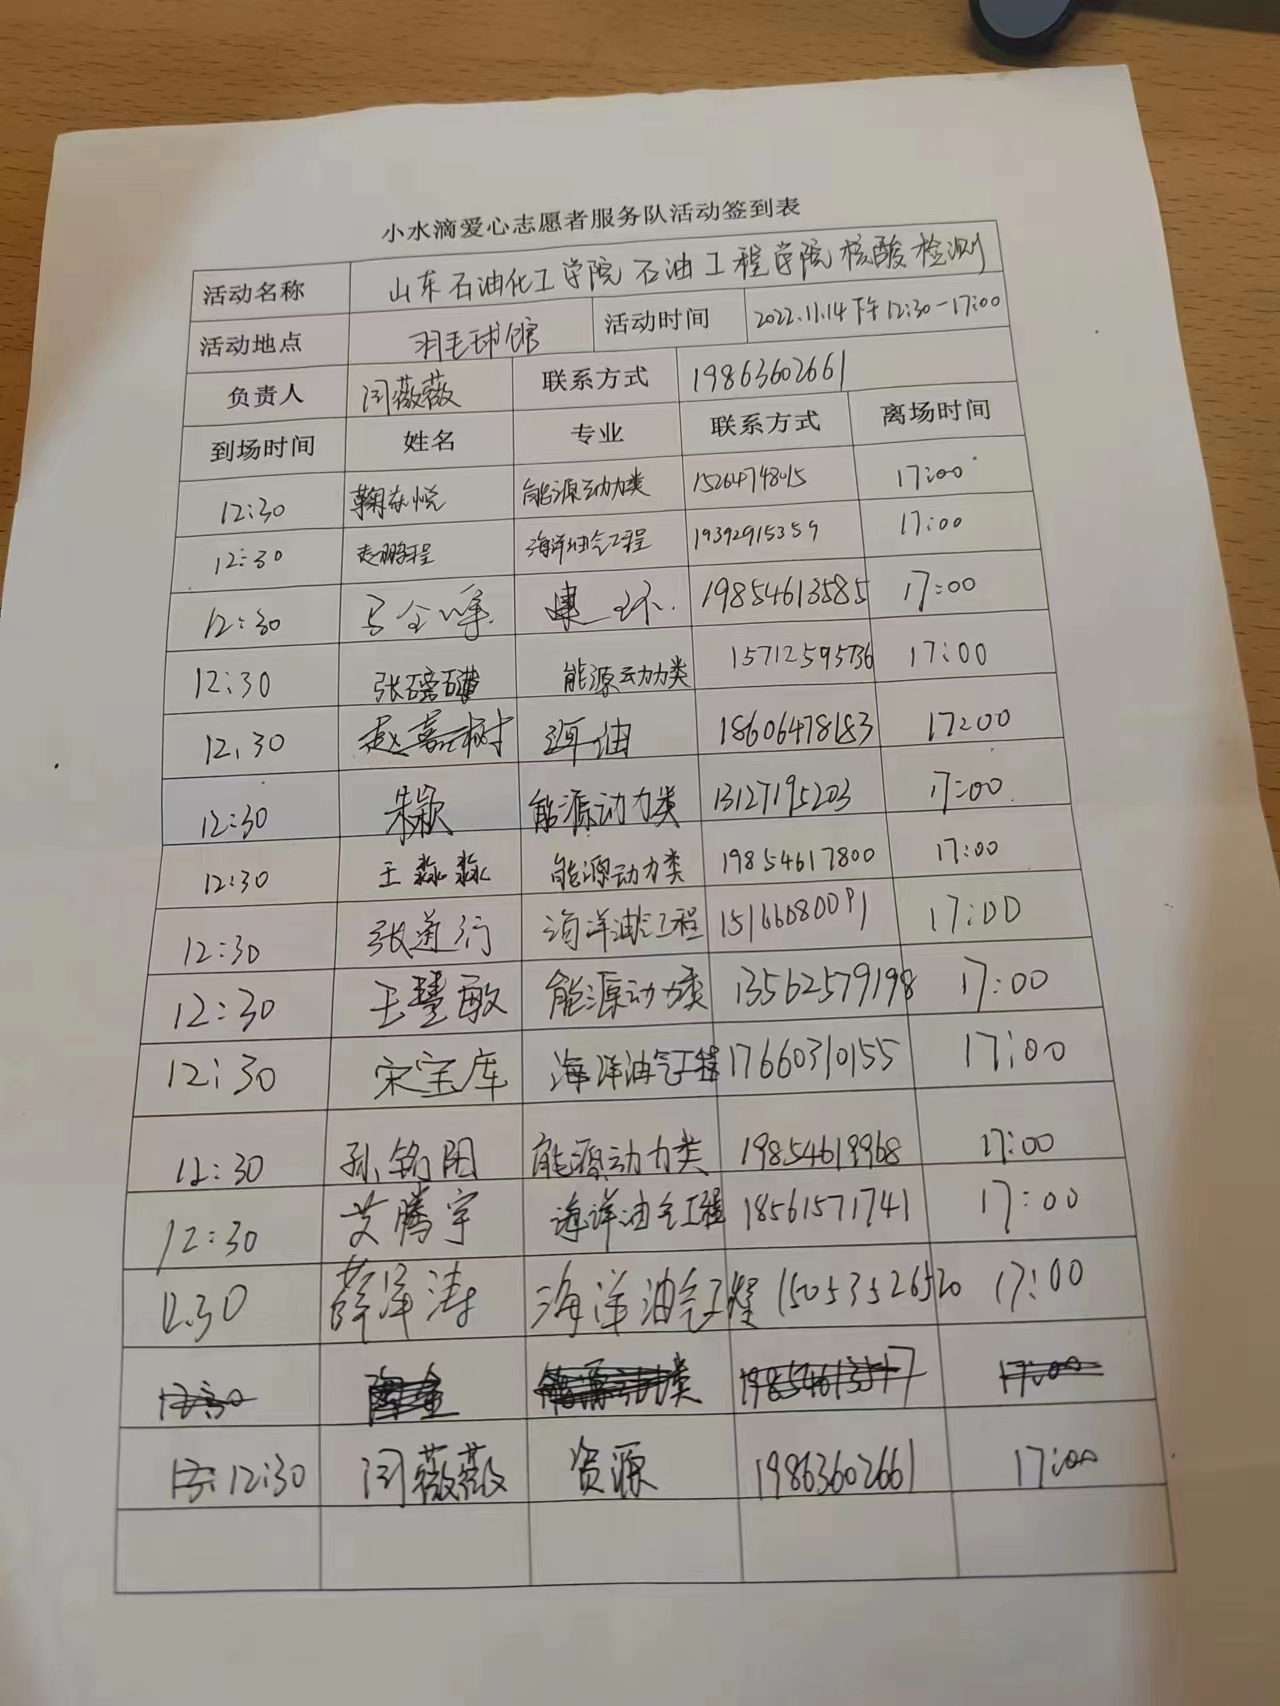 小水滴爱心志愿者服务队活动签到表
活动名称 山东石油化工学院石油工程学院核酸检测
活动地点 羽毛球馆 活动时间 2022.11.14下午12:30-17:00
负责人 闫薇薇 联系方式 19863602661
到场时间 姓名 专业 联系方式 离场时间
12:30 鞠欣悦 能源动力类 15264748015 17:00
12:30 赵鹏程 海洋油气工程 19392915359 17:00
12:30 19854613585 17:00
12:30 张磅礴 能源动力类 15712595736 17:00
12:30 赵嘉树 海油 18606478183 17:00
12:30 朱颖 能源动力类 13127195203 17:00
12:30 王淼淼 能源动力类 19854617800 17:00
12:30 张道行 海洋油气工程 15166080091 17:00
12:30 王慧敏 能源动力类 13562579198 17:00
12:30 宋宝库 海洋油气工程 17660310155 17:00
12:30 孙铭阳 能源动力类 19854619968 17:00
12:30 艾腾宇 海洋油气工程 18561571741 17:00
12.30 薛泽涛 海洋油气工程 15053526520 17:00
12:30 闫薇薇 资源 19863602661 17:00